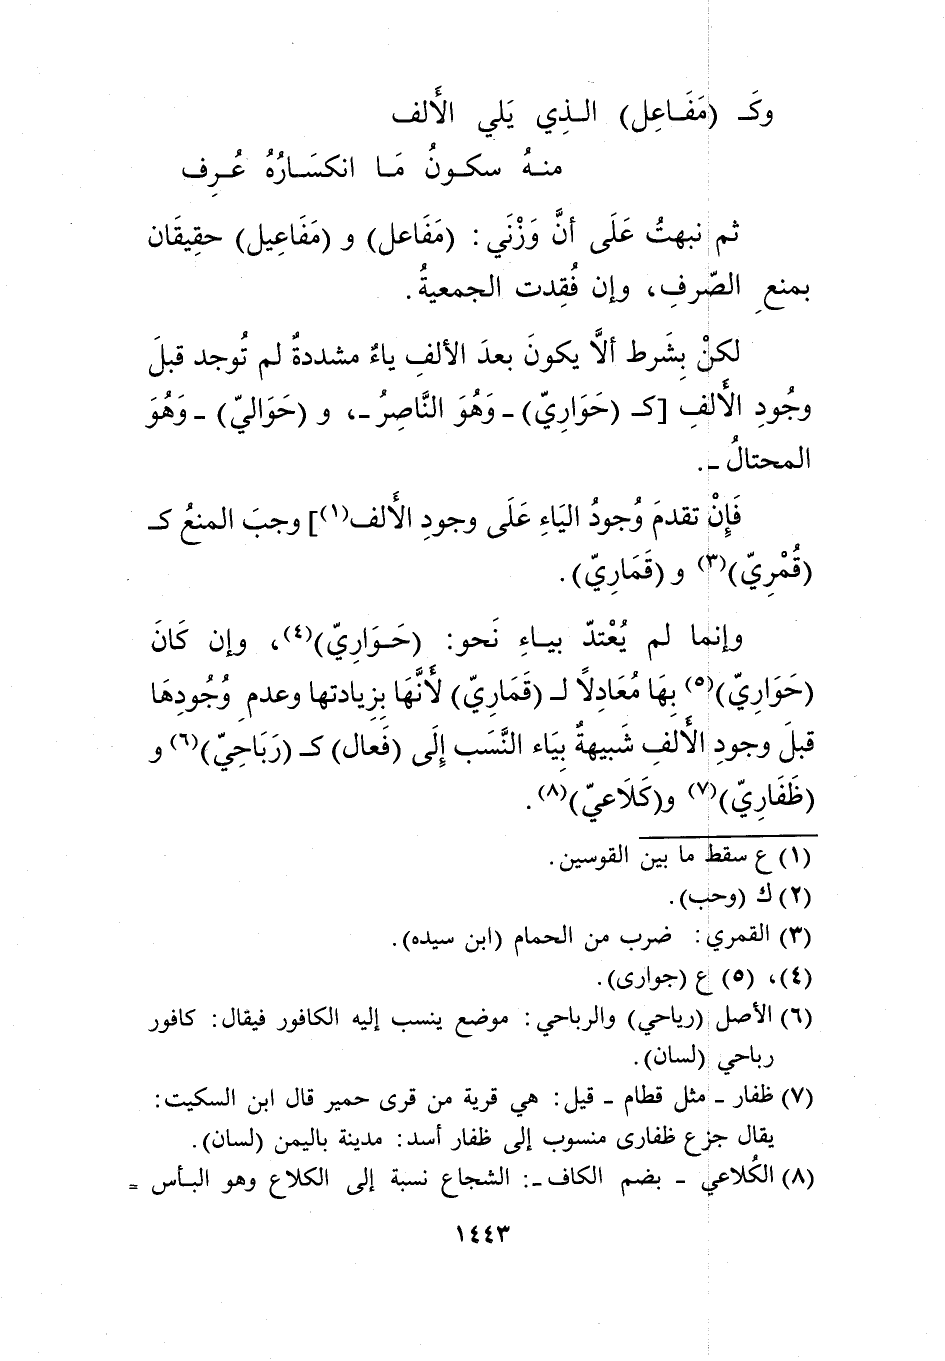 وكَـ (مَفَـاعِل) الـذِي يَلي الأَلف
منـهُ سكـونُ مَـا انكسَـارُهُ عُـرِف
ثم نبهتُ عَلَى أنَّ وَزْنَي : (مَفَاعل) و (مَفَاعِيل) حقِيقَان
بمنعِ الصّرفِ، وإن فُقِدت الجمعيةُ.
لكنْ بِشَرط ألاَّ يكونَ بعدَ الألفِ ياءٌ مشددةٌ لم تُوجد قبلَ
وجُودِ الأَلفِ [كـ (حَوَارِيّ) ـ وَهُوَ النَّاصِرُ ـ، و (حَوَاليّ) ـ وَهُوَ
المحتالُ ـ.
فَإِنْ تقدمَ وُجودُ اليَاءِ عَلَى وجودِ الأَلف(١)] وجبَ المنعُ كـ
(قُمْرِيّ)(٣) و (قَمَارِيّ).
وإنما لم يُعْتدّ بيـاءِ نَحو: (حَـوَارِيّ)(٤)، وإن كَانَ
(حَوَارِيّ)(٥) بِهَا مُعَادِلاً لـ (قَمَارِيّ) لأَنَّهَا بِزيادتها وعدمِ وُجُودِهَا
قبلَ وجودِ الأَلفِ شَبيهةٌ بِيَاء النَّسَب إِلَى (فَعال) كـ (رَبَاحِيّ)(٦) و
(ظَفَارِيّ)(٧) و(كَلَاعيّ)(٨).
(١) ع سقط ما بين القوسين.
(٢) ك (وحب).
(٣) القمري: ضرب من الحمام (ابن سيده).
(٤)، (٥) ع (جوارى).
(٦) الأصل (رياحي) والرباحي: موضع ينسب إليه الكافور فيقال: كافور
رباحي (لسان).
(٧) ظفار ـ مثل قطام ـ قيل: هي قرية من قرى حمير قال ابن السكيت:
يقال جزع ظفارى منسوب إلى ظفار أسد: مدينة باليمن (لسان).
(٨) الكُلاعي ـ بضم الكاف ـ: الشجاع نسبة إلى الكلاع وهو البـأس =
١٤٤٣